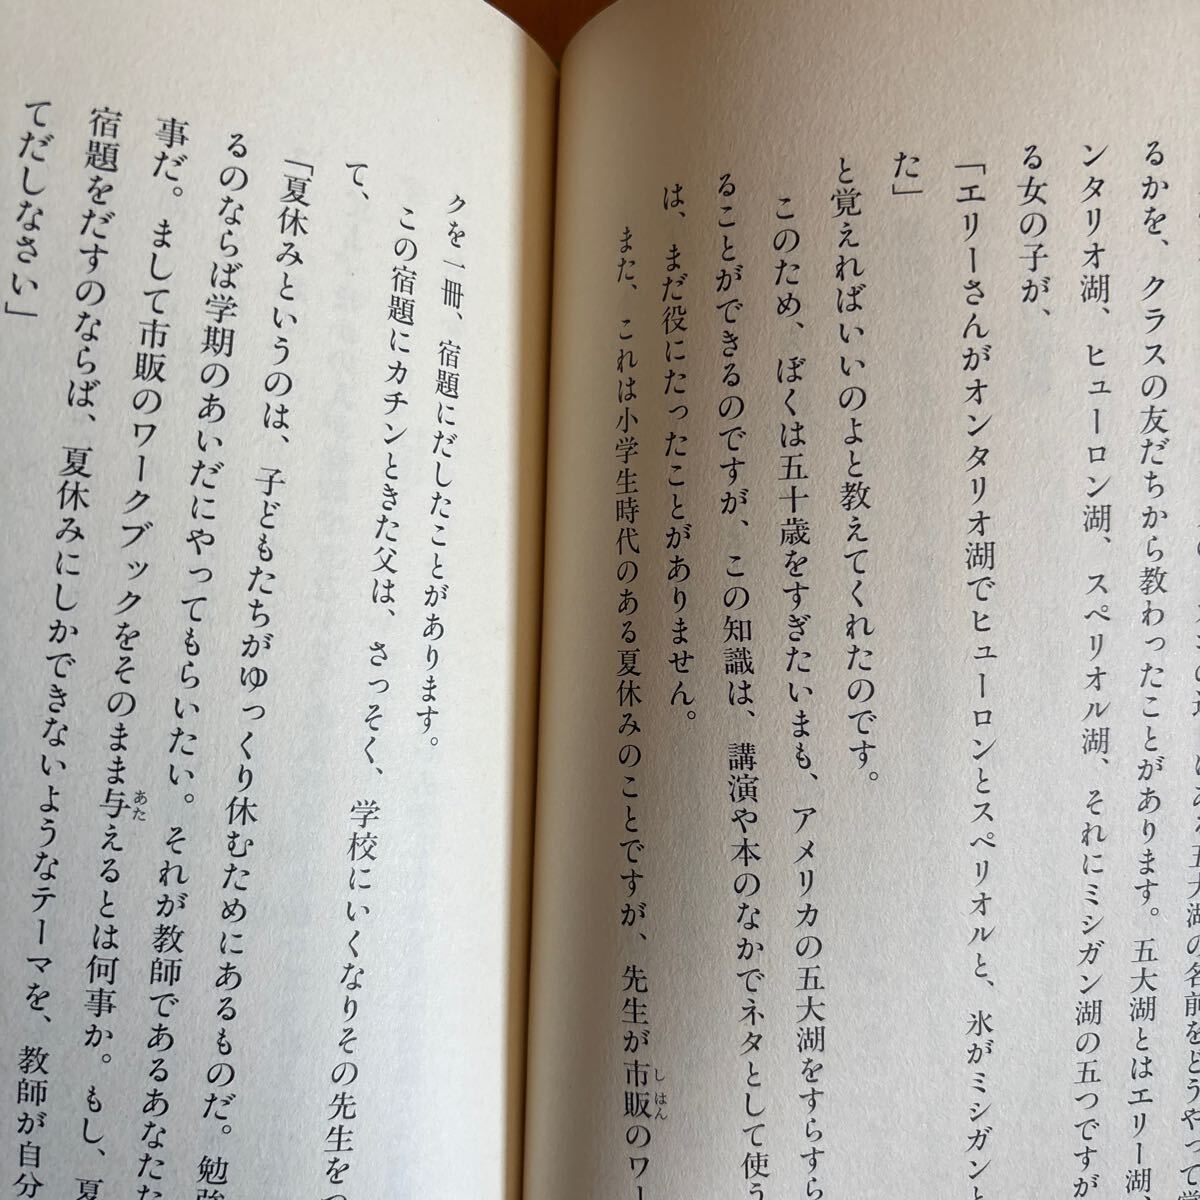 五大湖の名前をどうやって
るかを、クラスの友だちから教わったことがあります。五大湖とはエリー湖、
ンタリオ湖、ヒューロン湖、スペリオル湖、それにミシガン湖の五つですが
る女の子が、
「エリーさんがオンタリオ湖でヒューロンとスペリオルと、氷がミシガンと
た」
と覚えればいいのよと教えてくれたのです。
このため、ぼくは五十歳をすぎたいまも、アメリカの五大湖をすらすら
ることができるのですが、この知識は、講演や本のなかでネタとして使う
は、まだ役にたったことがありません。
また、これは小学生時代のある夏休みのことですが、先生が市販のワー
しはん
クを一冊、宿題にだしたことがあります。
この宿題にカチンときた父は、さっそく、学校にいくなりその先生をつ
て、
「夏休みというのは、子どもたちがゆっくり休むためにあるものだ。勉強
るのならば学期のあいだにやってもらいたい。それが教師であるあなたた
事だ。まして市販のワークブックをそのまま与えるとは何事か。もし、夏
あた
宿題をだすのならば、夏休みにしかできないようなテーマを、教師が自分
てだしなさい」